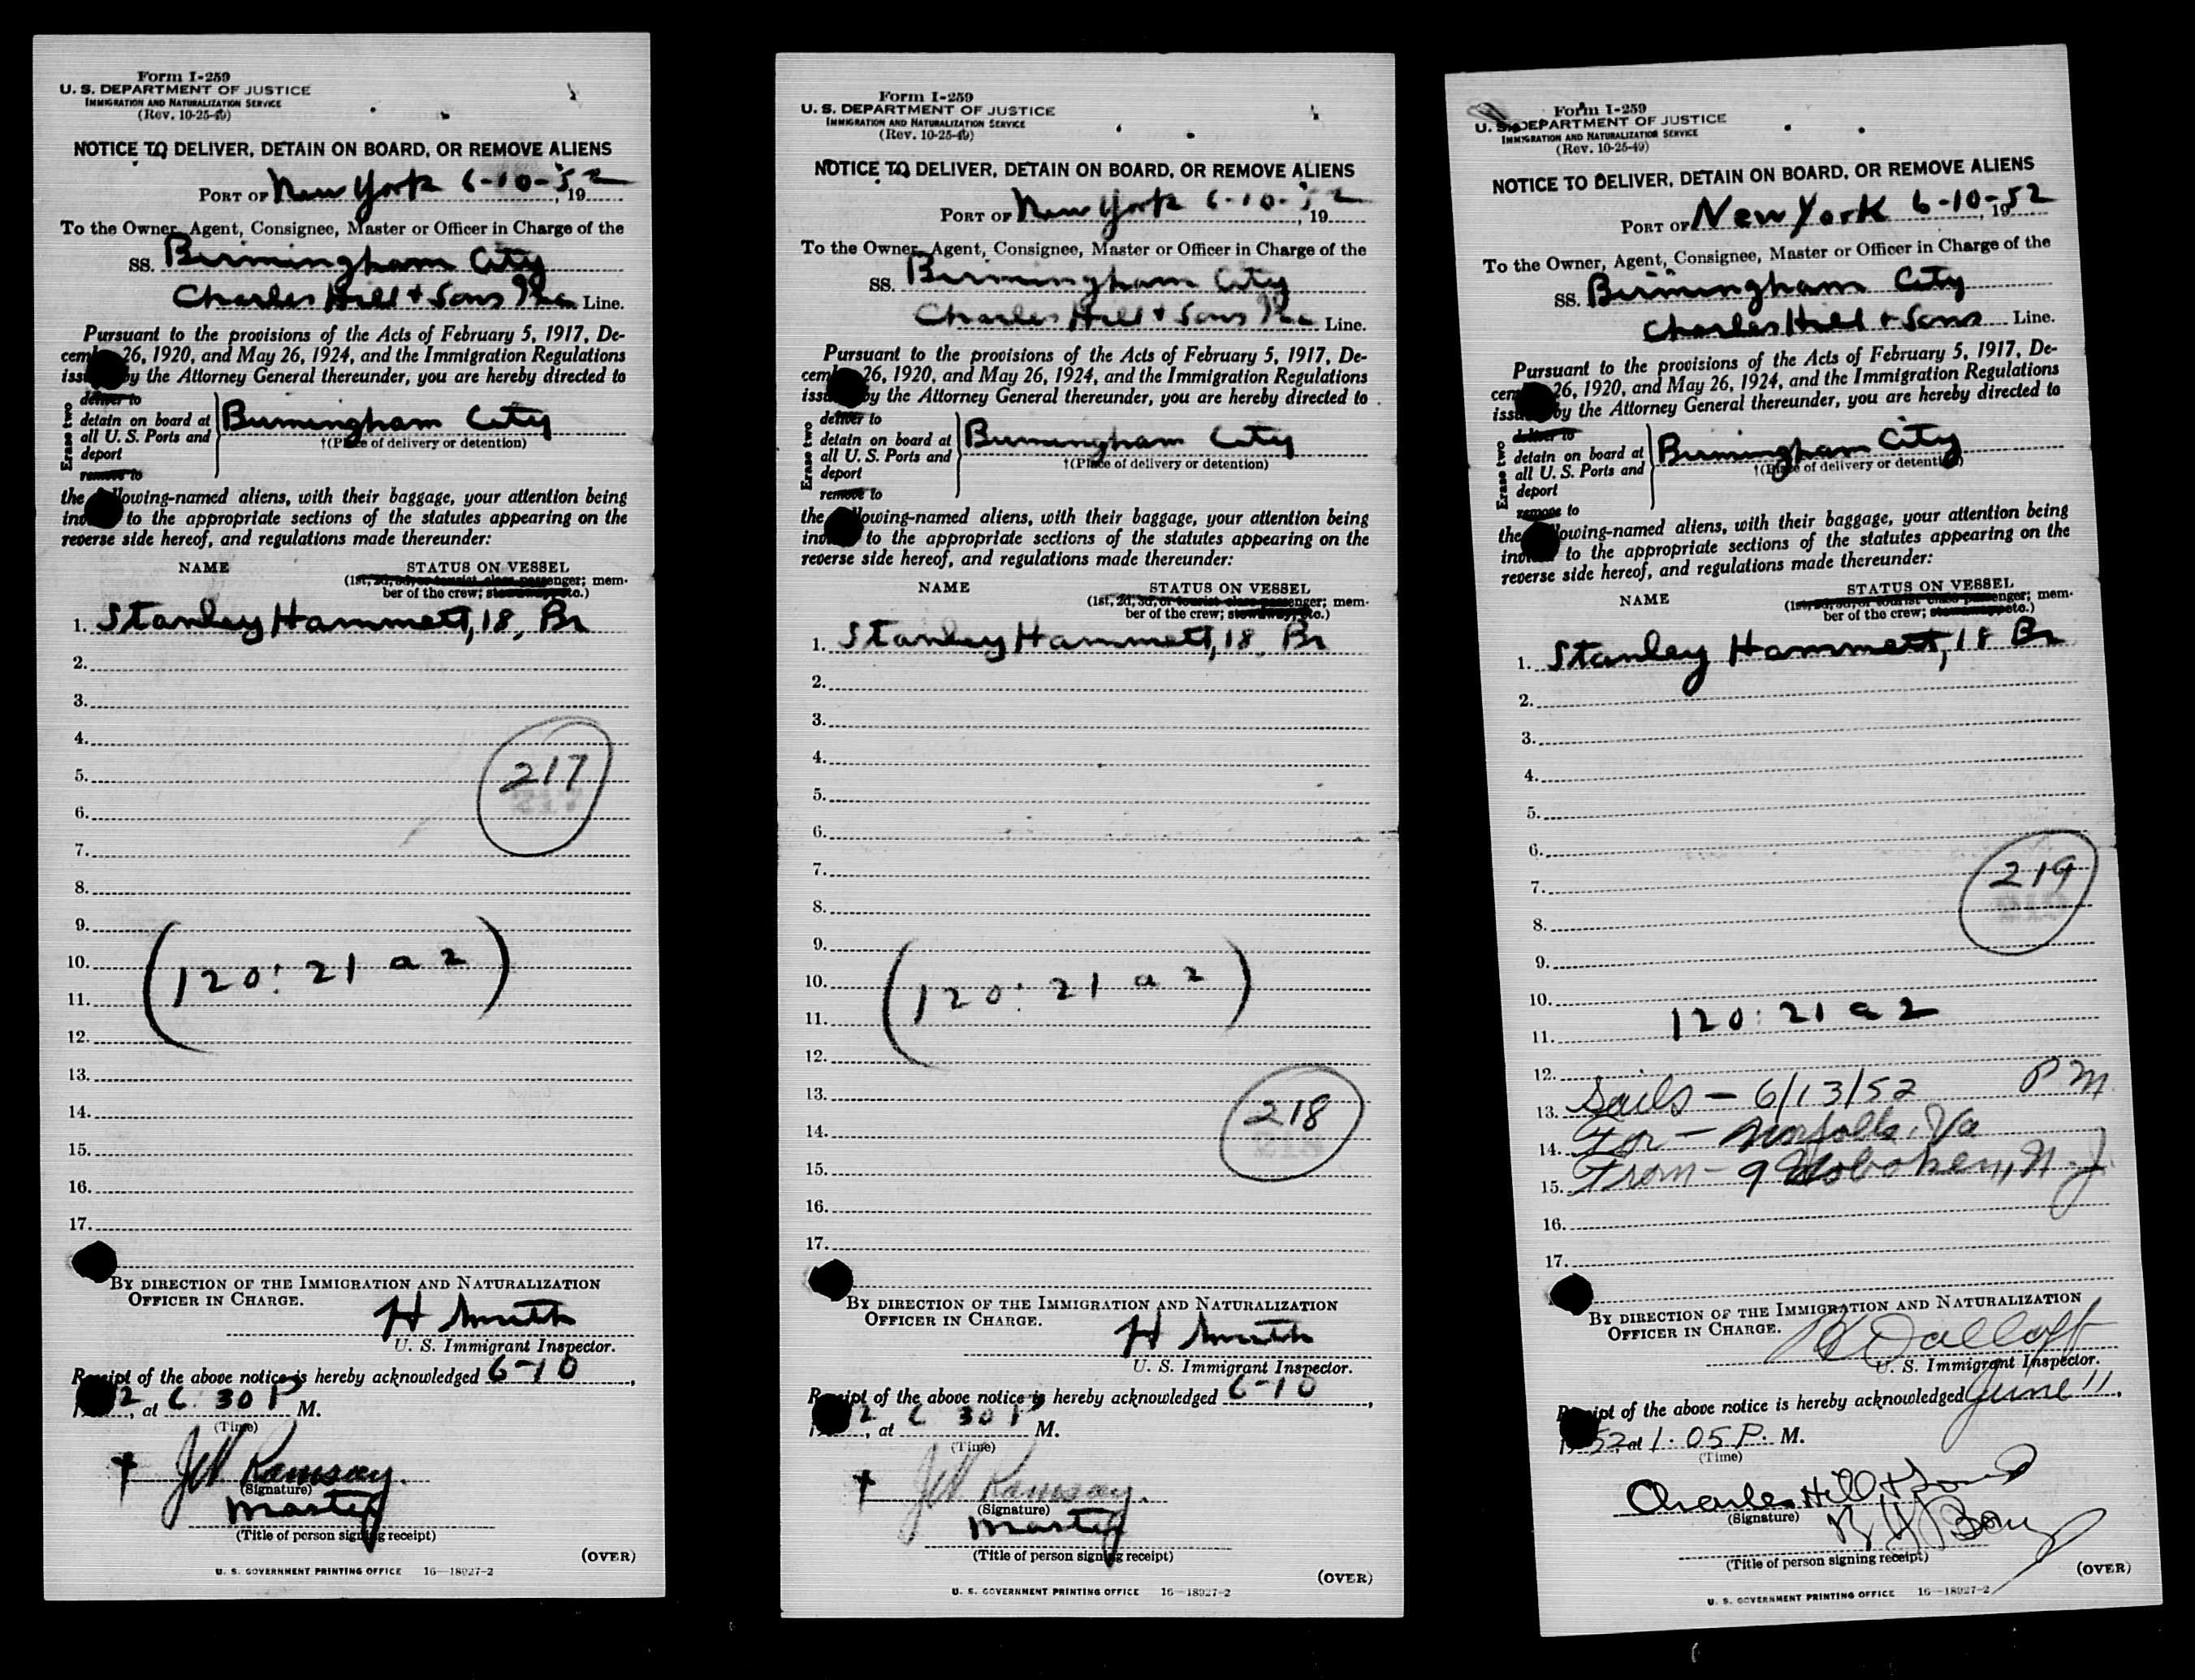 Form I-259
U. S. DEPARTMENT OF JUSTICE
IMMIGRATION AND NATURALIZATION SERVICE
(Rev. 10-25-49)
NOTICE TO DELIVER, DETAIN ON BOARD, OR REMOVE ALIENS
PORT OF New York 6-10-52, 19
To the Owner, Agent, Consignee, Master or Officer in Charge of the
SS. Birmingham City
Charles Hill & Sons Inc Line.
Pursuant to the provisions of the Acts of February 5, 1917, De-
cem 26, 1920, and May 26, 1924, and the Immigration Regulations
iss by the Attorney General thereunder, you are hereby directed to
Erase two
deliver to
detain on board at
all U. S. Ports and
deport
remove to
Birmingham City
†(Place of delivery or detention)
the following-named aliens, with their baggage, your attention being
inv to the appropriate sections of the statutes appearing on the
reverse side hereof, and regulations made thereunder:
NAME STATUS ON VESSEL
(1st, 2d, 3d, or tourist class passenger; mem-
ber of the crew; stowaway, etc.)
1. Stanley Hammett, 18, Br
2.
3.
4.
5. 217
6. 217
7.
8.
9.
10. (120: 21 a 2)
11.
12.
13.
14.
15.
16.
17.
BY DIRECTION OF THE IMMIGRATION AND NATURALIZATION
OFFICER IN CHARGE.
H Smith
U. S. Immigrant Inspector.
Receipt of the above notice is hereby acknowledged 6-10,
2, at 6:30 P M.
(Time)
Ramsay.
(Signature)
Master
(Title of person signing receipt)
(OVER)
U. S. GOVERNMENT PRINTING OFFICE 16—18027-2
Form I-259
U. S. DEPARTMENT OF JUSTICE
IMMIGRATION AND NATURALIZATION SERVICE
(Rev. 10-25-49)
NOTICE TO DELIVER, DETAIN ON BOARD, OR REMOVE ALIENS
PORT OF New York 6-10-52, 19
To the Owner, Agent, Consignee, Master or Officer in Charge of the
SS. Birmingham City
Charles Hill & Sons Inc Line.
Pursuant to the provisions of the Acts of February 5, 1917, De-
cem 26, 1920, and May 26, 1924, and the Immigration Regulations
iss by the Attorney General thereunder, you are hereby directed to
Erase two
deliver to
detain on board at
all U. S. Ports and
deport
remove to
Birmingham City
†(Place of delivery or detention)
the following-named aliens, with their baggage, your attention being
inv to the appropriate sections of the statutes appearing on the
reverse side hereof, and regulations made thereunder:
NAME STATUS ON VESSEL
(1st, 2d, 3d, or tourist class passenger; mem-
ber of the crew; stowaway, etc.)
1. Stanley Hammett, 18, Br
2.
3.
4.
5.
6.
7.
8.
9.
10. (120: 21 a 2)
11.
12.
13. 218
14. 218
15.
16.
17.
BY DIRECTION OF THE IMMIGRATION AND NATURALIZATION
OFFICER IN CHARGE.
H Smith
U. S. Immigrant Inspector.
Receipt of the above notice is hereby acknowledged 6-10,
2, at 6 30 P M.
(Time)
Ramsay.
(Signature)
Master
(Title of person signing receipt)
(OVER)
U. S. GOVERNMENT PRINTING OFFICE 16—18027-2
Form I-259
U. S. DEPARTMENT OF JUSTICE
IMMIGRATION AND NATURALIZATION SERVICE
(Rev. 10-25-49)
NOTICE TO DELIVER, DETAIN ON BOARD, OR REMOVE ALIENS
PORT OF New York 6-10-52, 19
To the Owner, Agent, Consignee, Master or Officer in Charge of the
SS. Birmingham City
Charles Hill & Sons Line.
Pursuant to the provisions of the Acts of February 5, 1917, De-
cem 26, 1920, and May 26, 1924, and the Immigration Regulations
iss by the Attorney General thereunder, you are hereby directed to
Erase two
deliver to
detain on board at
all U. S. Ports and
deport
remove to
Birmingham City
†(Place of delivery or detention)
the following-named aliens, with their baggage, your attention being
inv to the appropriate sections of the statutes appearing on the
reverse side hereof, and regulations made thereunder:
NAME STATUS ON VESSEL
(1st, 2d, 3d, or tourist class passenger; mem-
ber of the crew; stowaway, etc.)
1. Stanley Hammett, 18 Br
2.
3.
4.
5.
6.
7. 219
8. 219
9.
10.
11. 120: 21 a 2
12.
13. Sails – 6/13/52 P.M.
14. For – Norfolk, Va
15. From – 9 Hoboken, N.J.
16.
17.
BY DIRECTION OF THE IMMIGRATION AND NATURALIZATION
OFFICER IN CHARGE.
U. S. Immigrant Inspector.
Receipt of the above notice is hereby acknowledged June 11,
1952 at 1.05 P. M.
(Time)
Charles Hill & Sons
(Signature)
(Title of person signing receipt)
(OVER)
U. S. GOVERNMENT PRINTING OFFICE 16—18027-2